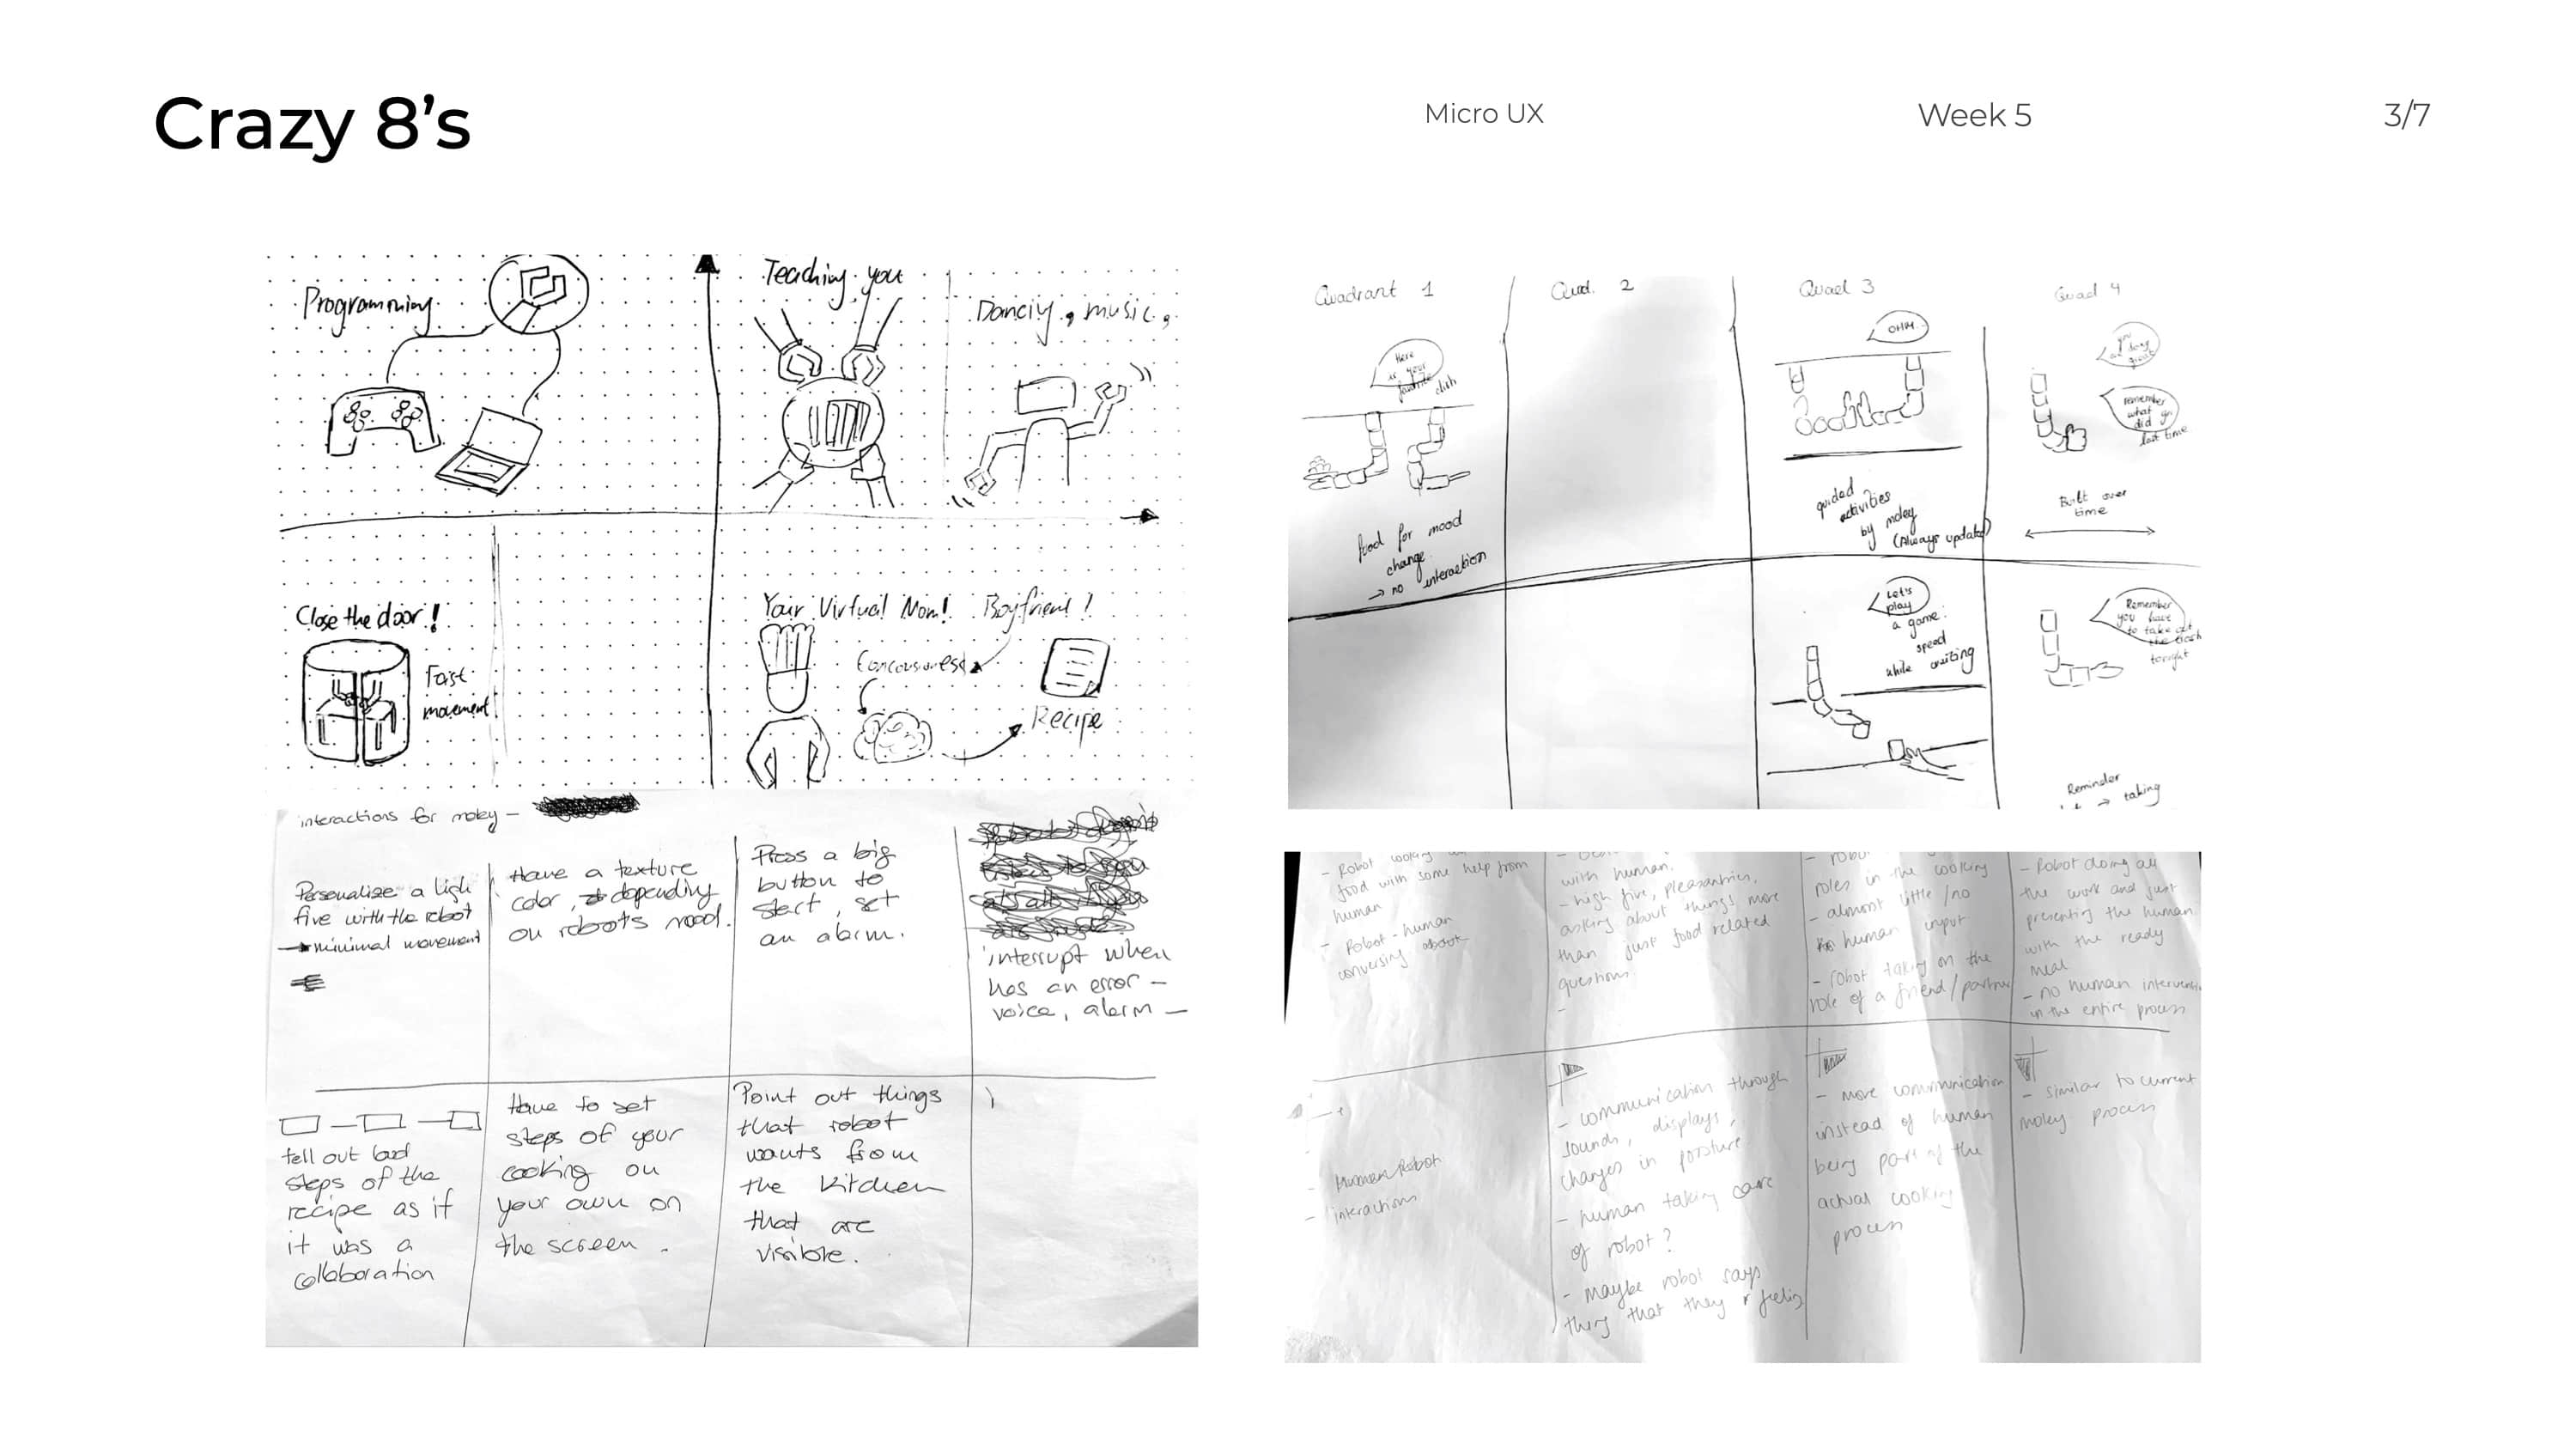 Crazy 8's
Micro UX
Week 5
3/7
Programming
Teaching you
Dancing, music,
Close the door!
Fast
movement
Your Virtual Mom! Boyfriend!
Recipe
interactions for moley –
Personalize a high
five with the robot
→ minimal movement
Have a texture
color, depending
on robots mood.
Press a big
button to
start, set
an alarm.
interrupt when
has an error –
voice, alarm –
tell out loud
steps of the
recipe as if
it was a
collaboration
Have to set
steps of your
cooking on
your own on
the screen.
Point out things
that robot
wants from
the kitchen
that are
visible.
Quadrant 1
Quad. 2
Quad 3
Quad 4
Here
is your
favorite
dish
food for mood
change
→ no interaction
OHM
guided
activities
by moley
(Always update)
you
are doing
great
remember
what u
did
last time
Built over
time
Let's
play
a game:
speed
while
Remember
you have
to take out
the trash
tonight
Reminder
→ taking
- Robot
food with some help from
human
- Robot-human
conversing about
with human.
- high five, pleasantries,
asking about things more
than just food related
questions.
roles in the cooking
- almost little/no
human input
- robot taking on the
role of a friend/partner
- Robot doing all
the work and just
presenting the human
with the ready
meal
- no human
in the entire process
- Human Robot
- interactions
- communication through
sounds, displays,
changes in posture
- human taking care
of robot?
- maybe robot says
thing that they r feeling
- more communication
instead of human
being part of the
actual cooking
process
- similar to current
moley process